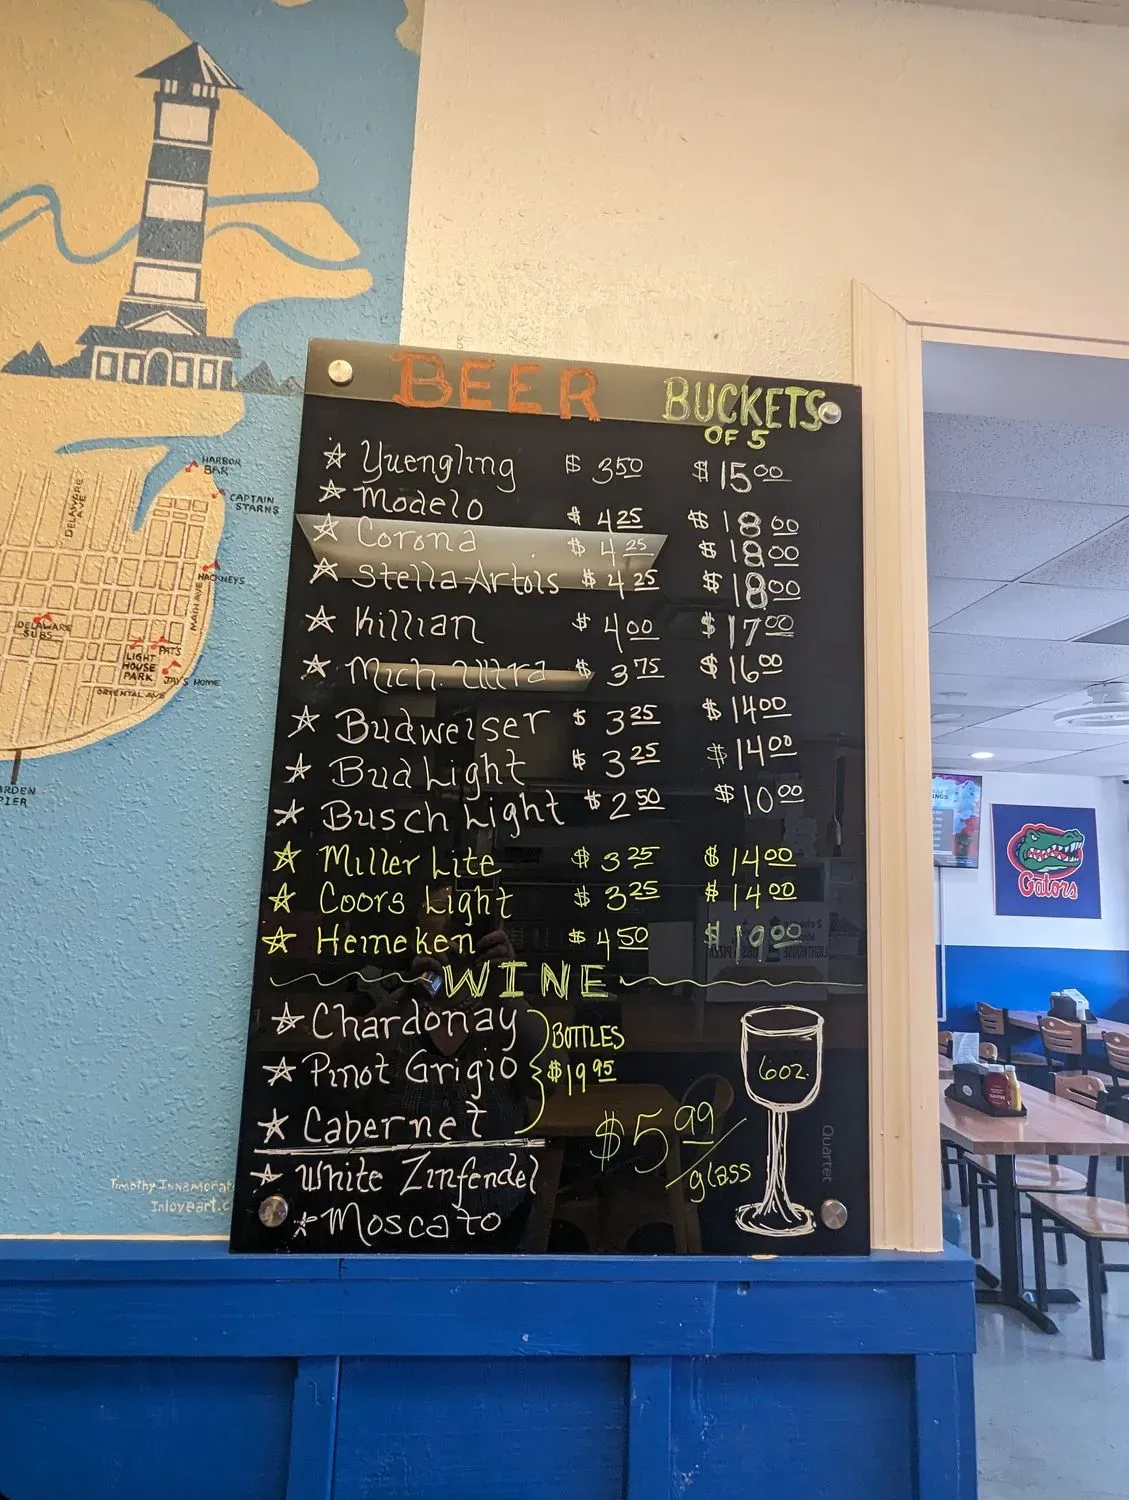 BEER BUCKETS
OF 5
☆ Yuengling $ 3.50 $ 15.00
☆ Modelo $ 4.25 $ 18.00
☆ Corona $ 4.25 $ 18.00
☆ Stella Artois $ 4.25 $ 18.00
☆ Killian $ 4.00 $ 17.00
☆ Mich. Ultra $ 3.75 $ 16.00
☆ Budweiser $ 3.25 $ 14.00
☆ Bud Light $ 3.25 $ 14.00
☆ Busch Light $ 2.50 $ 10.00
☆ Miller Lite $ 3.25 $ 14.00
☆ Coors Light $ 3.25 $ 14.00
☆ Heineken $ 4.50 $ 19.00
WINE
☆ Chardonay
☆ Pinot Grigio
☆ Cabernet
BOTTLES
$19.95
☆ White Zinfendel
☆ Moscato
$5.99/glass
6oz.
Quartet
HARBOR
BAR
CAPTAIN
STARNS
DELAWARE
AVE
HACKNEYS
MAIN AVE
DELAWARE
SUBS
PAT'S
LIGHT
HOUSE
PARK
JAY'S HOME
ORIENTAL AVE
PIER
Timothy
Inloveart.c
Gators